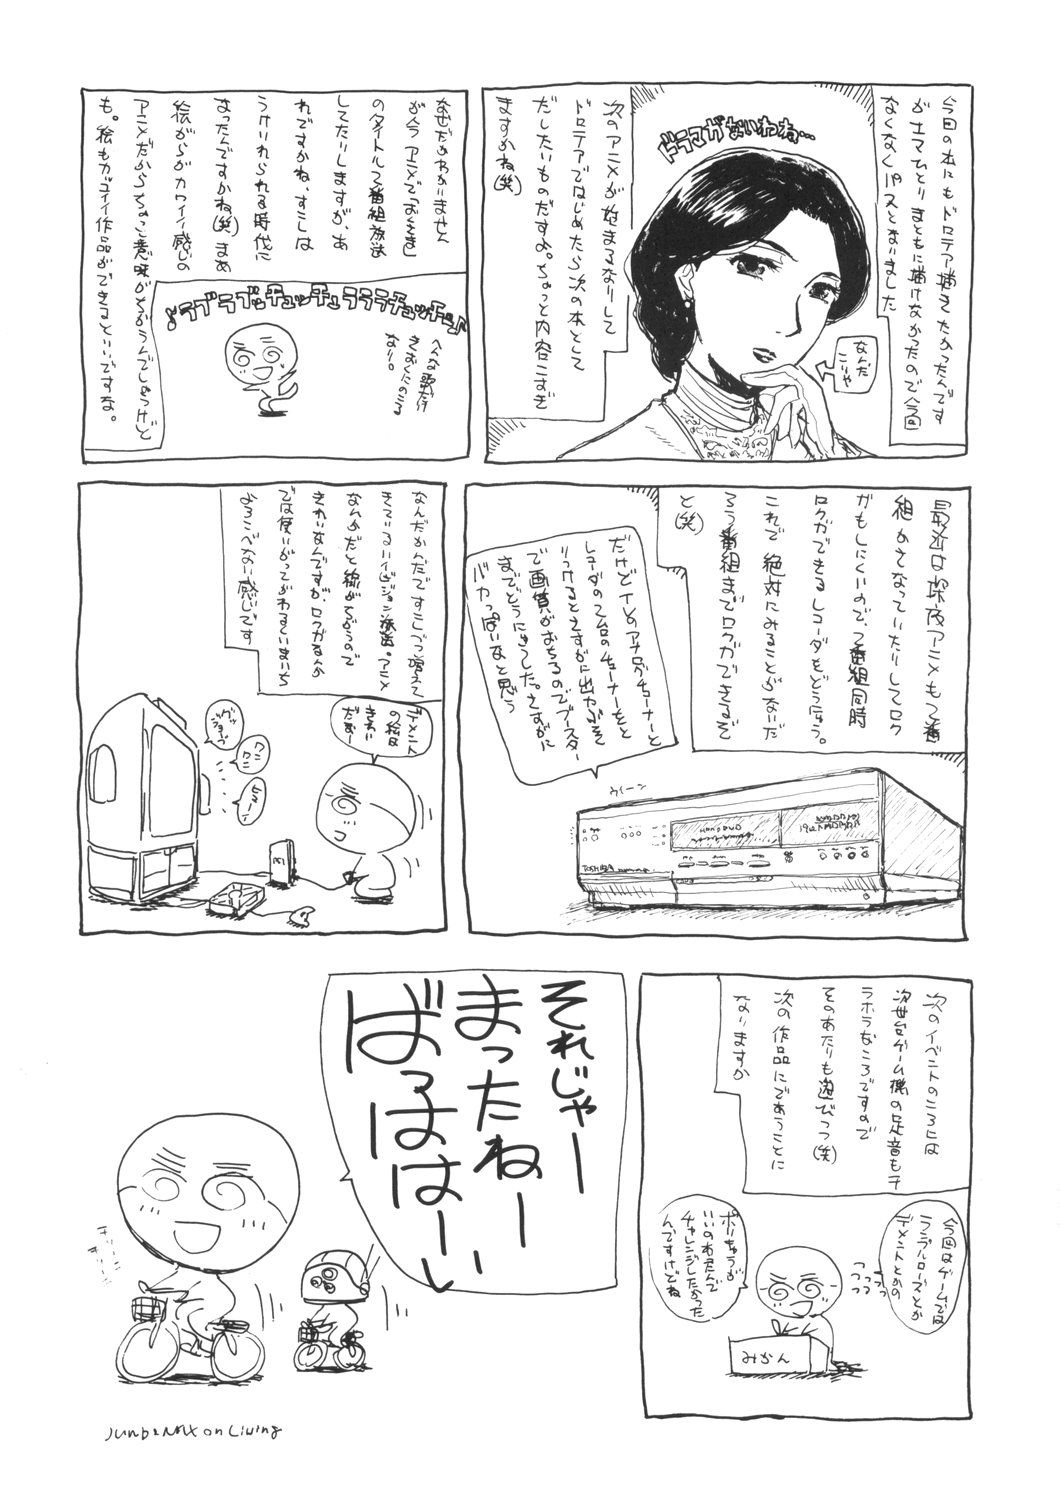 今回の本にもドロテア描きたかったんです
がエマひとりまともに描けなかったので今回
なくなくパスとなりました
ドラマがないわね…
なんだ
こりゃ
次のアニメが始まるなりして
ドロテアではじめたら次の本として
だしたいものだすよ。ちょっと内容こすぎ
ますかね(笑)
なぜだかわかりません
が今アニメで
のタイトルで番組放送
してたりしますが、あ
れですかね、すこしは
うけいれられる時代に
なったんですかね(笑)まあ
絵がらがカワイイ感じの
アニメだからちょっと意味がちがうんでしょうけど
も。絵もカッコイイ作品ができるといいですな。
♪ラブラブチュッチュラララチュッチュ♪
へんな歌だけ
きおくにのこる
なり。
最近は深夜アニメも2番
組かさなっていたりしてロク
ガもしにくいので、2番組同時
ロクガできるレコーダをどうにゅう。
これで絶対にみることがないだ
ろう番組までロクガできるぞ
と(笑)
だけどTVのアナログチューナーと
レコーダの2台のチューナーをと
りつけるとさすがに出力ぶそく
で画質がおちるのでブースター
までどうにゅうした。さすがに
バカっぽいなと思う
ウィーン
TOSHIBA
なんだかんだですこしづつ増えて
きているハイビジョン放送。アニメ
なんかだと線がちがうので
きれいなんですが、ロクガなんか
では使いがってがわるくいまいち
よろこべない感じです
デメントの絵は
きれい
だなー
グッ
ジョーブ
ワン
ワン
ヒューン
次のイベントのころには
次世代ゲーム機の足音もチ
ラホラなころですので
そのあたりも遊びつつ(笑)
次の作品にであうことに
なりますか
今回はゲームでは
ランブルローズとか
デメントとかの
ポリキャラが
いいのおたんで
チャレンジしたかった
んですけどね
みかん
それじゃー
まったねー
ばっははーい
Junb&Max on Living